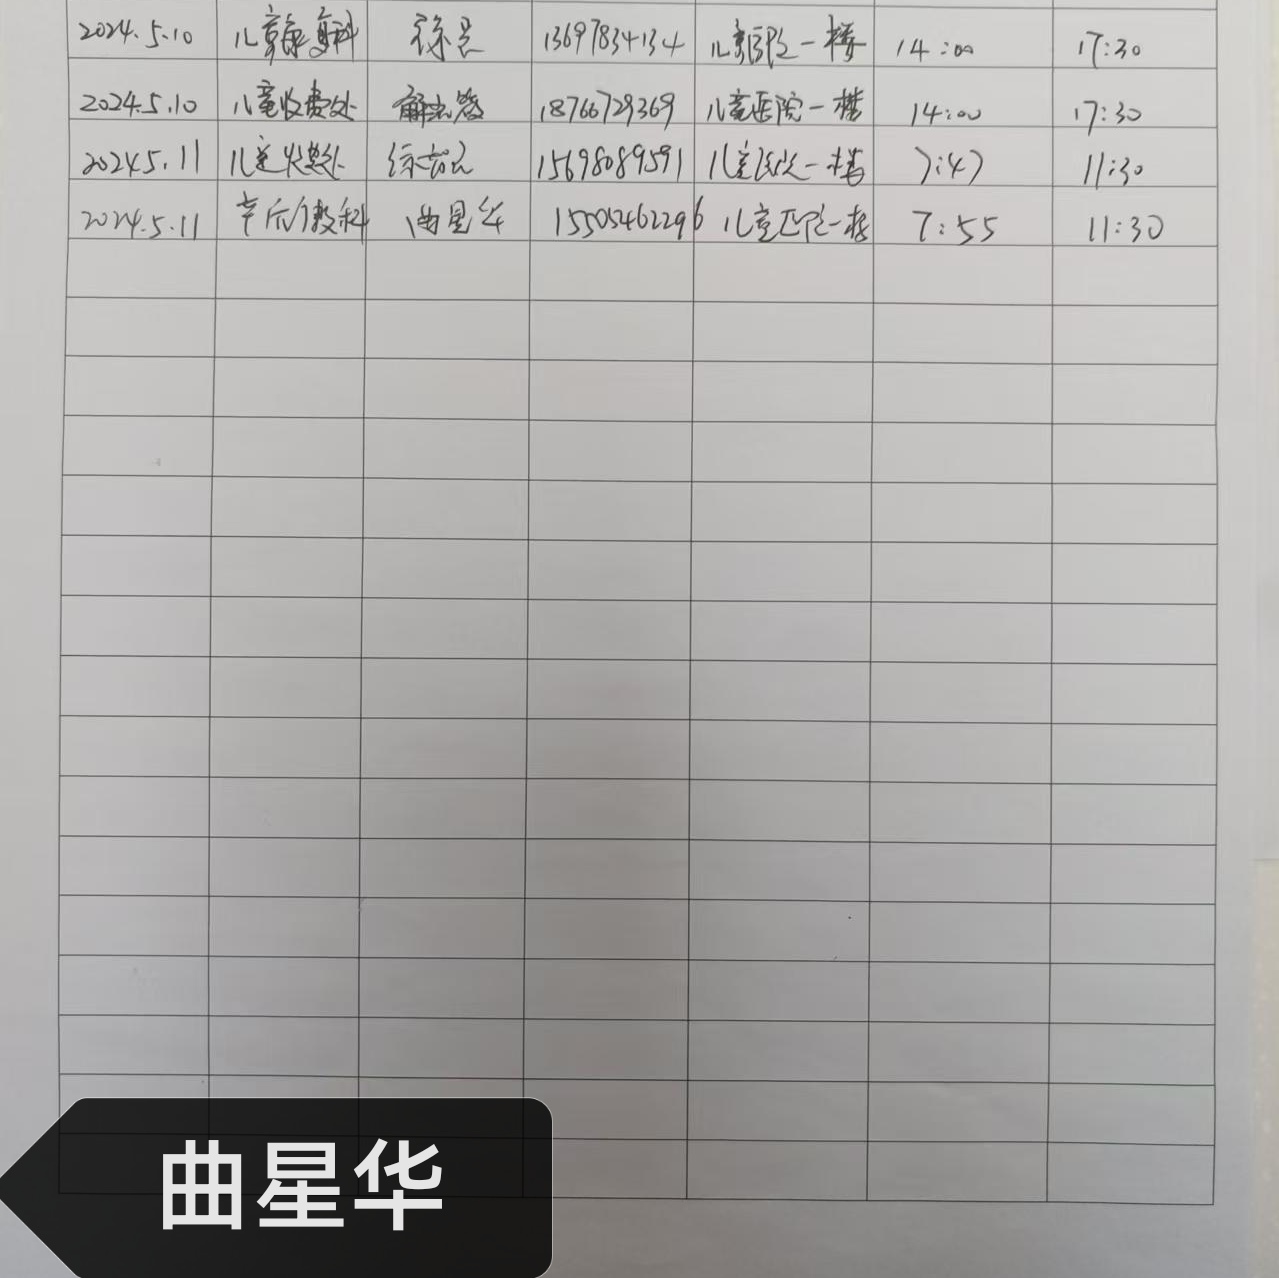 2024.5.10 儿童康复科 徐 13697834134 儿童医院一楼 14:00 17:30
2024.5.10 儿童收费处 解 18766729369 儿童医院一楼 14:00 17:30
2024.5.11 儿童 15698089591 儿童医院一楼 7:47 11:30
2024.5.11 曲星华 15505462296 儿童医院一楼 7:55 11:30
曲星华